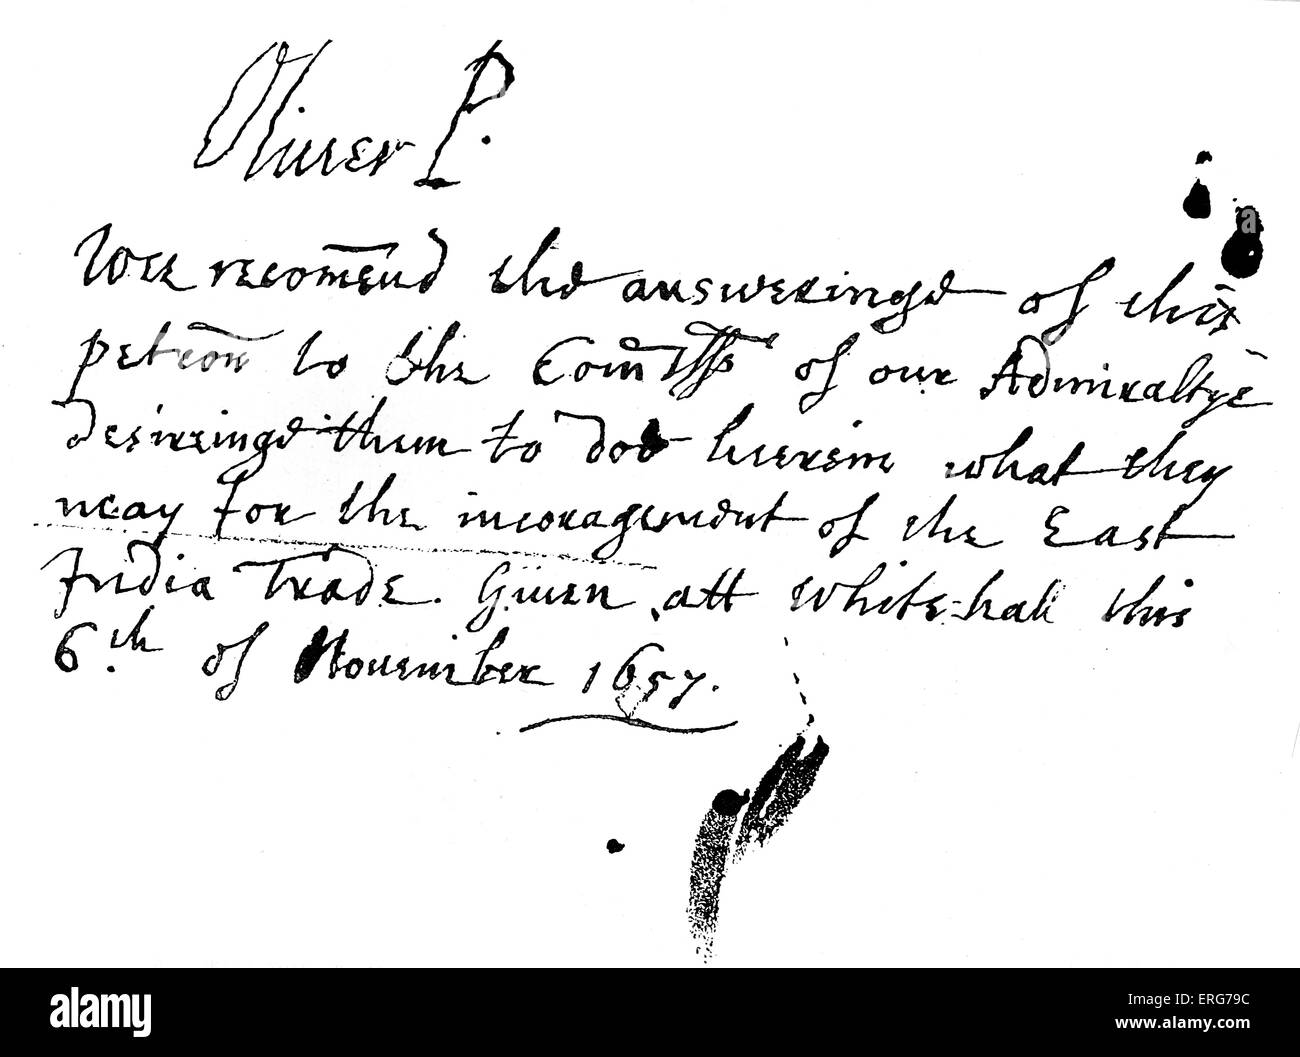 Oliver P.
Wee recom̄end the answeringe of this
petic̄on to the Com̄rs of our Admiraltye
desireinge them to doe herein what they
may for the incoragement of the East
India Trade. Given att White-hall this
6.th of November 1657.
a
alamy
Image ID: ERG79C
www.alamy.com